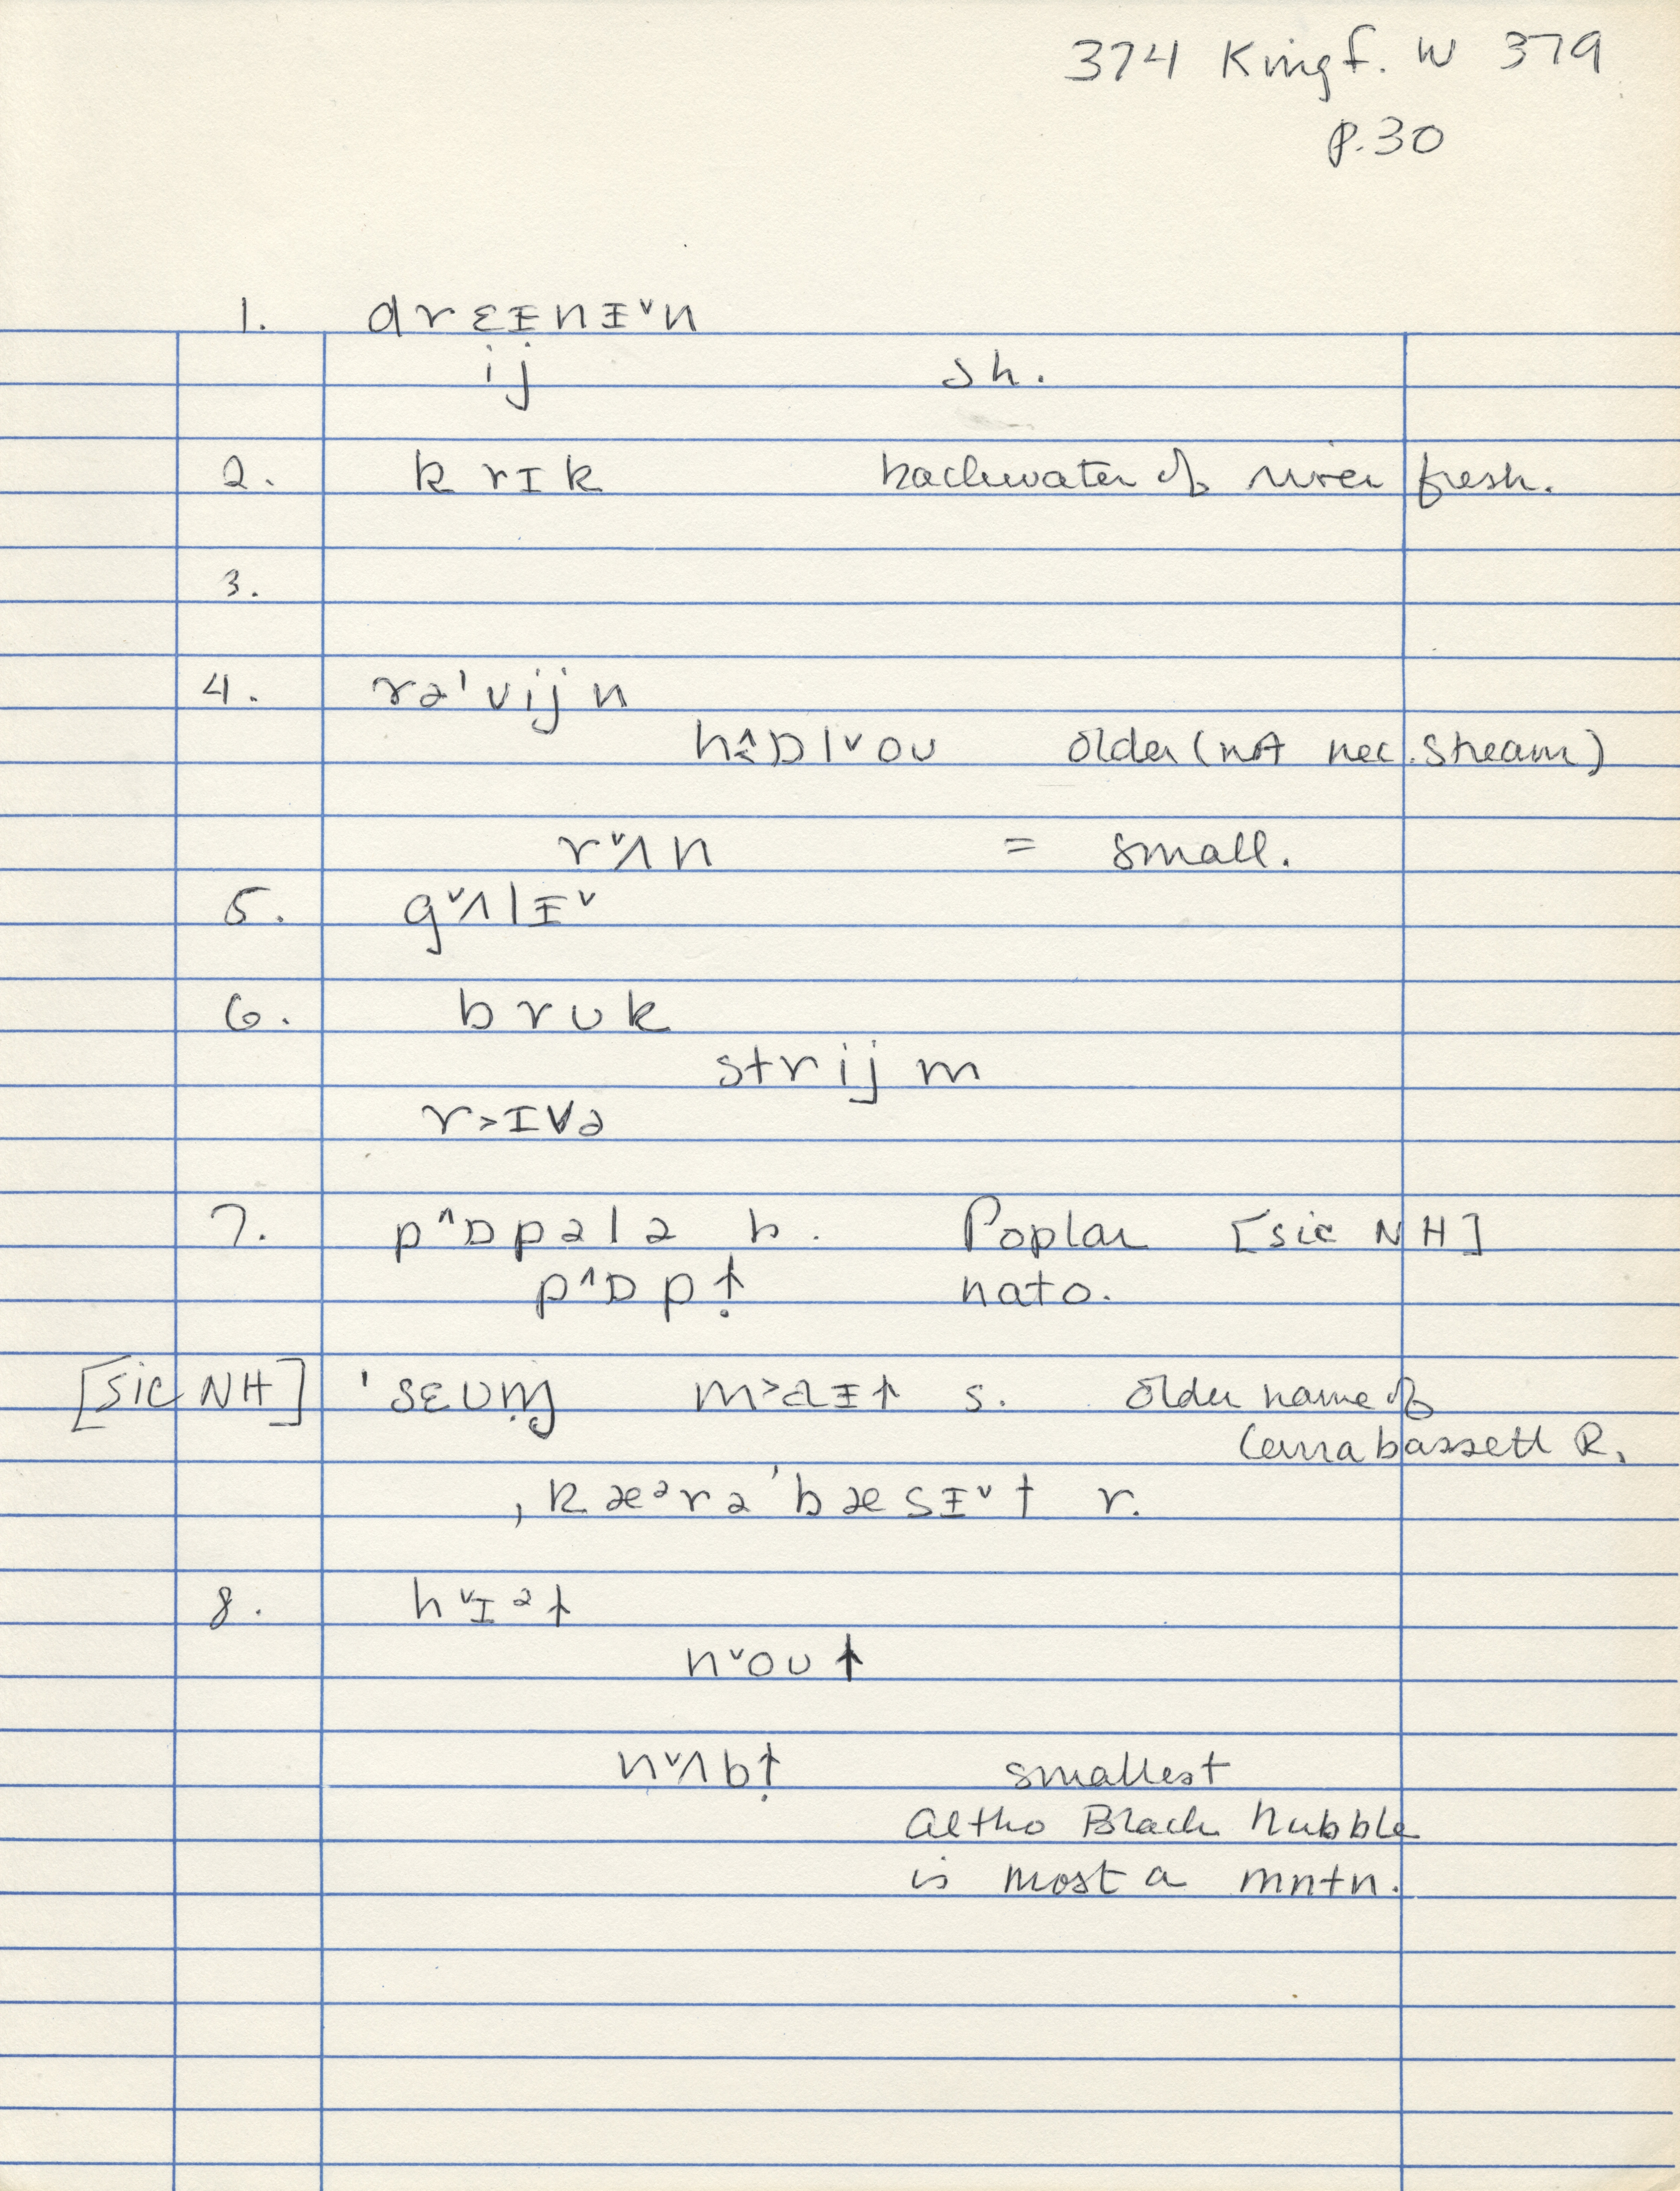 374 Kingf. W 379
p.30
1. drɛᵻnᵻ˅n
ij sh.
2. krɪk backwater of river fresh.
3.
4. rə'vijn
older (not nec. stream)
r˅ʌn = small.
5. g˅ʌlᵻ˅
6. brʊk
strijm
r˃ɪvə
7. p˄ɒpələ b. Poplar [sic NH]
p˄ɒpɫ̣ nato.
[sic NH] s. older name of
Carrabassett R.
ˌkæᵊrə'bæsᵻ˅t r.
8. h˅ɪᵊɫ
n˅oʊɫ
n˅ʌbɫ̣ smallest
altho Black Nubble
is most a mntn.